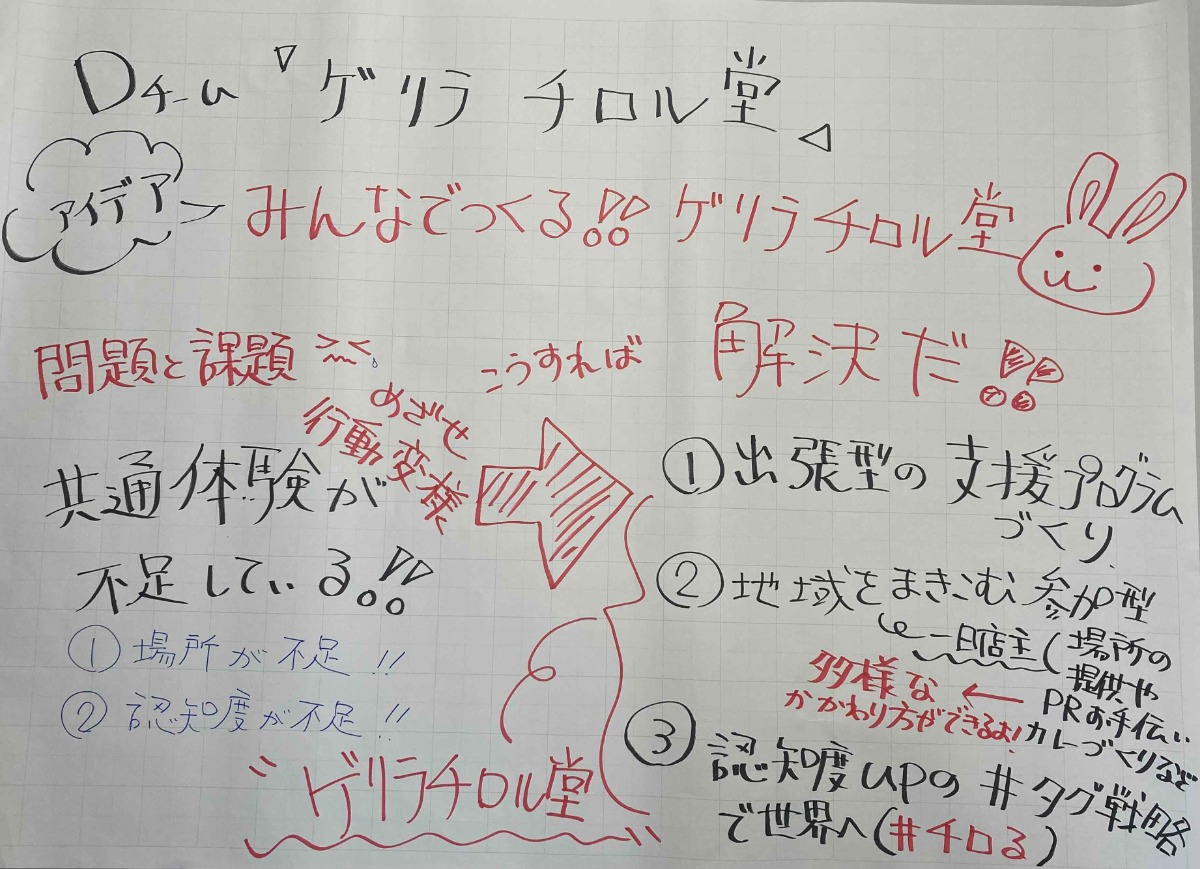 Dチーム『ゲリラ チロル堂』
アイデア
みんなでつくる!! ゲリラ チロル堂
問題と課題
こうすれば
解決だ!!
めざせ
行動変様
共通体験が
不足している!!
① 場所が不足!!
② 認知度が不足!!
"ゲリラチロル堂"
① 出張型の支援プログラム
づくり
② 地域をまきこむ参加型
一日店主(場所の
提供や
PRお手伝い
カレーづくりなど
多様な ←
かかわり方ができるよ!
③ 認知度upの#タグ戦略
で世界へ(#チロる)